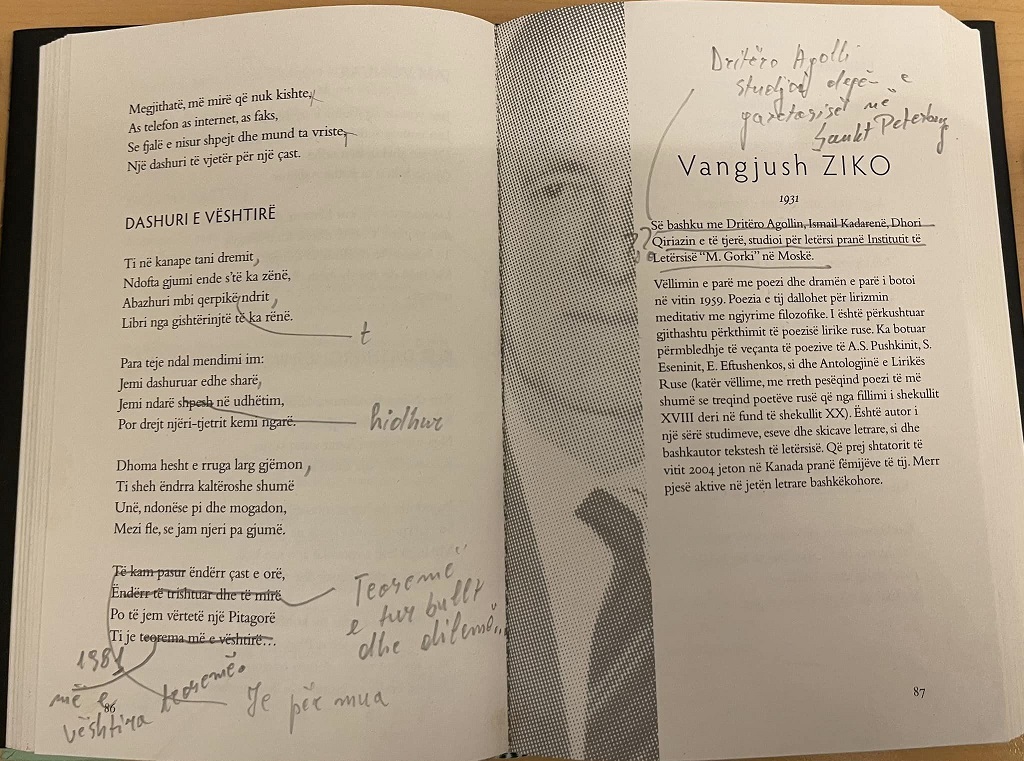 Megjithatë, më mirë që nuk kishte,
As telefon as internet, as faks,
Se fjalë e nisur shpejt dhe mund ta vriste,
Një dashuri të vjetër për një çast.
DASHURI E VËSHTIRË
Ti në kanape tani dremit,
Ndofta gjumi ende s'të ka zënë,
Abazhuri mbi qerpikë ndrit,
Libri nga gishtërinjtë të ka rënë.
t
Para teje ndal mendimi im:
Jemi dashuruar edhe sharë,
Jemi ndarë shpesh në udhëtim,
Por drejt njëri-tjetrit kemi ngarë.
hidhur
Dhoma hesht e rruga larg gjëmon,
Ti sheh ëndrra kaltëroshe shumë
Unë, ndonëse pi dhe mogadon,
Mezi fle, se jam njeri pa gjumë.
Të kam pasur ëndërr çast e orë,
Ëndërr të trishtuar dhe të mirë
Po të jem vërtetë një Pitagorë
Ti je teorema më e vështirë...
Teoremë
e turbullt
dhe dilemë,,
1981
më e
vështira teoremë.
Je për mua
86
Dritëro Agolli
studjoi degën e
gazetarisët në
Sankt Peterburg
Vangjush ZIKO
1931
Së bashku me Dritëro Agollin, Ismail Kadarenë, Dhori
Qiriazin e të tjerë, studioi për letërsi pranë Institutit të
Letërsisë "M. Gorki" në Moskë.
??
Vëllimin e parë me poezi dhe dramën e parë i botoi
në vitin 1959. Poezia e tij dallohet për lirizmin
meditativ me ngjyrime filozofike. I është përkushtuar
gjithashtu përkthimit të poezisë lirike ruse. Ka botuar
përmbledhje të veçanta të poezive të A.S. Pushkinit, S.
Eseninit, E. Eftushenkos, si dhe Antologjinë e Lirikës
Ruse (katër vëllime, me rreth pesëqind poezi të më
shumë se treqind poetëve rusë që nga fillimi i shekullit
XVIII deri në fund të shekullit XX). Është autor i
një sërë studimeve, eseve dhe skicave letrare, si dhe
bashkautor tekstesh të letërsisë. Që prej shtatorit të
vitit 2004 jeton në Kanada pranë fëmijëve të tij. Merr
pjesë aktive në jetën letrare bashkëkohore.
87